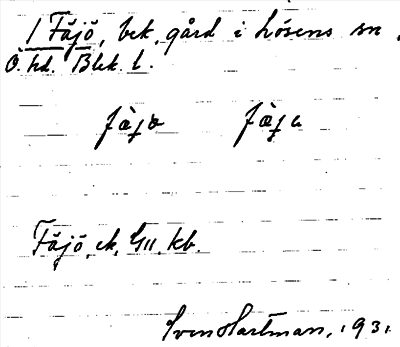 1 Fäjö, bek. gård i Lösens sn,
Ö. hd. Blek. l.
Fäjö, ek, GII, kb.
Sven Hartman, 1931